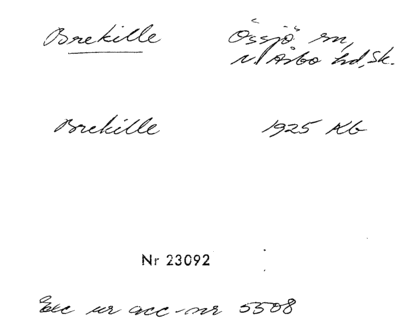 Brekille Össjö sn,
N Åsbo hd, Sk.
Brekille 1925 Kb
Nr 23092
Exc ur acc-nr 5508